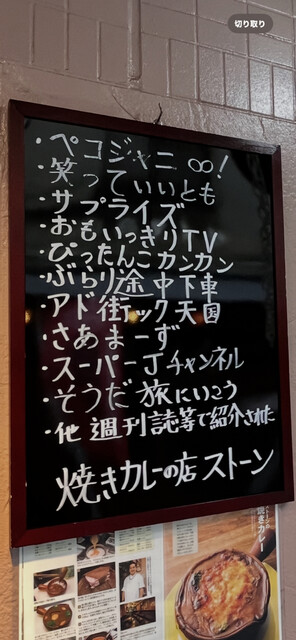 切り取り
・ペコジャニ∞!
・笑っていいとも
・サプライズ
・おもいっきりTV
・ぴったんこカンカン
・ぶらり途中下車
・アド街ック天国
・さあまーず
・スーパーJチャンネル
・そうだ旅にいこう
・他 週刊誌等で紹介された
焼きカレーの店ストーン
焼きカレー